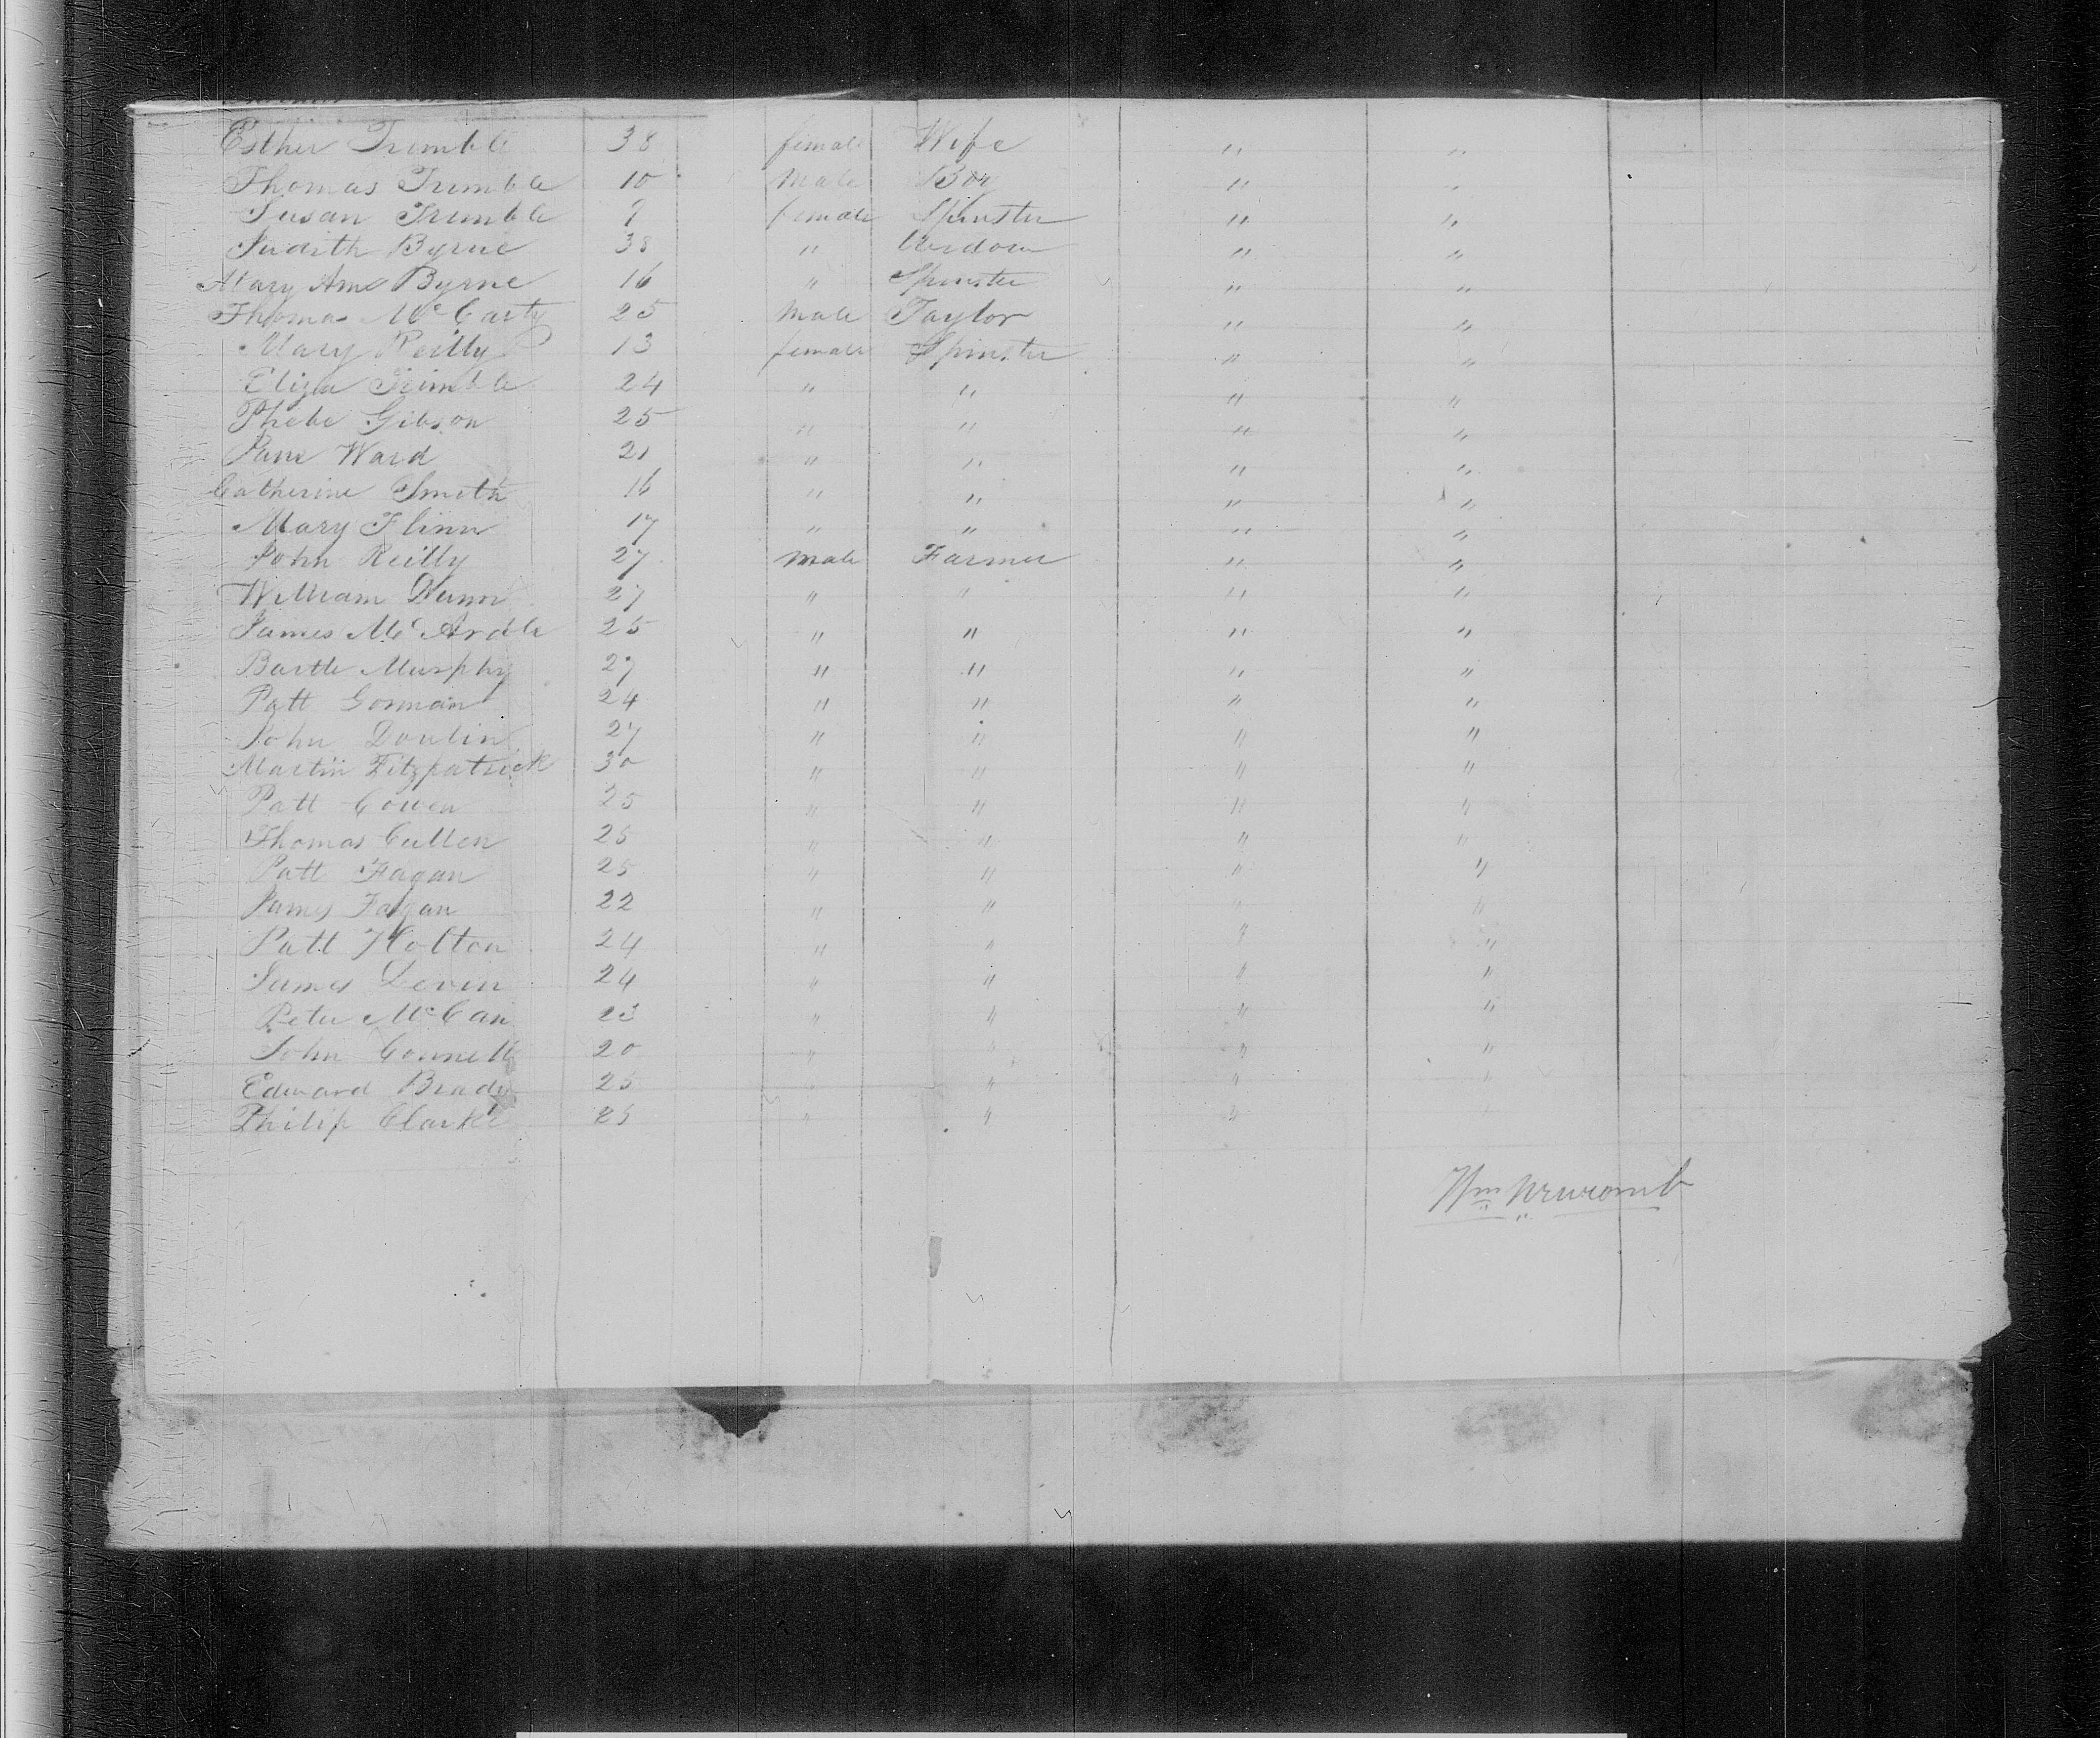 Esther Trimble 38 female Wife " "
Thomas Trimble 10 Male Boy " "
Susan Trimble 9 female Spinster " "
Judith Byrne 38 " Widow " "
Mary Ann Byrne 16 " Spinster " "
Thomas McCarty 25 Male Taylor " "
Mary Reilly 13 female Spinster " "
Eliza Trimble 24 " " " "
Phebe Gibson 25 " " " "
Jane Ward 21 " " " "
Catherine Smith 16 " " " "
Mary Flinn 17 " " " "
John Reilly 27 male Farmer " "
William Dunn 27 " " " "
James McArdle 25 " " " "
Bartle Murphy 27 " " " "
Patt Gorman 24 " " " "
John Doulin 27 " " " "
Martin Fitzpatrick 30 " " " "
Patt Cowen 25 " " " "
Thomas Cullen 25 " " " "
Patt Fagan 25 " " " "
James Fagan 22 " " " "
Patt Holton 24 " " " "
James Devin 24 " " " "
Peter McCan 23 " " " "
John Connell 20 " " " "
Edward Brady 25 " " " "
Philip Clarke 25 " " " "
Wm Newcomb